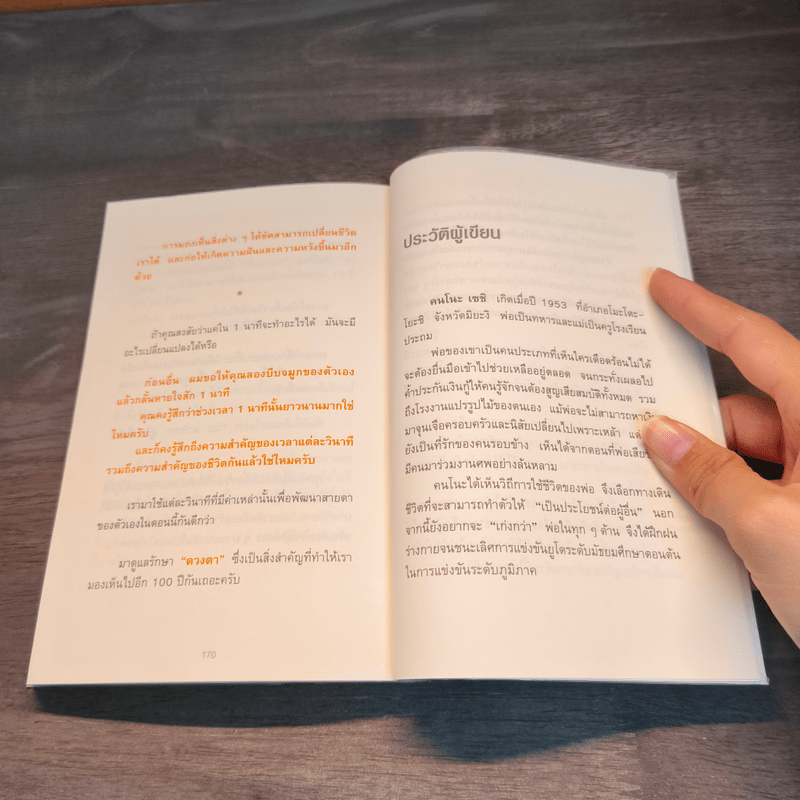 การมองเห็นสิ่งต่าง ๆ ได้ชัดสามารถเปลี่ยนชีวิต
เราได้ และก่อให้เกิดความฝันและความหวังขึ้นมาอีก
ด้วย
*
ถ้าคุณสงสัยว่าแค่ใน 1 นาทีจะทำอะไรได้ มันจะมี
อะไรเปลี่ยนแปลงได้หรือ
ก่อนอื่น ผมขอให้คุณลองบีบจมูกของตัวเอง
แล้วกลั้นหายใจสัก 1 นาที
คุณคงรู้สึกว่าช่วงเวลา 1 นาทีนั้นยาวนานมากใช่
ไหมครับ
และก็คงรู้สึกถึงความสำคัญของเวลาแต่ละวินาที
รวมถึงความสำคัญของชีวิตกันแล้วใช่ไหมครับ
เรามาใช้แต่ละวินาทีที่มีค่าเหล่านั้นเพื่อพัฒนาสายตา
ของตัวเองในตอนนี้กันดีกว่า
มาดูแลรักษา “ดวงตา” ซึ่งเป็นสิ่งสำคัญที่ทำให้เรา
มองเห็นไปอีก 100 ปีกันเถอะครับ
170
ประวัติผู้เขียน
คนโนะ เซชิ เกิดเมื่อปี 1953 ที่อำเภอโมะโตะ-
โยะชิ จังหวัดมิยะงิ พ่อเป็นทหารและแม่เป็นครูโรงเรียน
ประถม
พ่อของเขาเป็นคนประเภทที่เห็นใครเดือดร้อนไม่ได้
จะต้องยื่นมือเข้าไปช่วยเหลืออยู่ตลอด จนกระทั่งเผลอไป
ค้ำประกันเงินกู้ให้คนรู้จักจนต้องสูญเสียสมบัติทั้งหมด รวม
ถึงโรงงานแปรรูปไม้ของตนเอง แม้พ่อจะไม่สามารถหา
มาจุนเจือครอบครัวและนิสัยเปลี่ยนไปเพราะเหล้า
ยังเป็นที่รักของคนรอบข้าง เห็นได้จากตอนที่พ่อ
มีคนมาร่วมงานศพอย่างล้นหลาม
คนโนะได้เห็นวิถีการใช้ชีวิตของพ่อ จึงเลือกทางเดิน
ชีวิตที่จะสามารถทำตัวให้ “เป็นประโยชน์ต่อผู้อื่น” นอก
จากนี้ยังอยากจะ “เก่งกว่า” พ่อในทุก ๆ ด้าน จึงได้ฝึกฝน
ร่างกายจนชนะเลิศการแข่งขันยูโดระดับมัธยมศึกษาตอนต้น
ในการแข่งขันระดับภูมิภาค